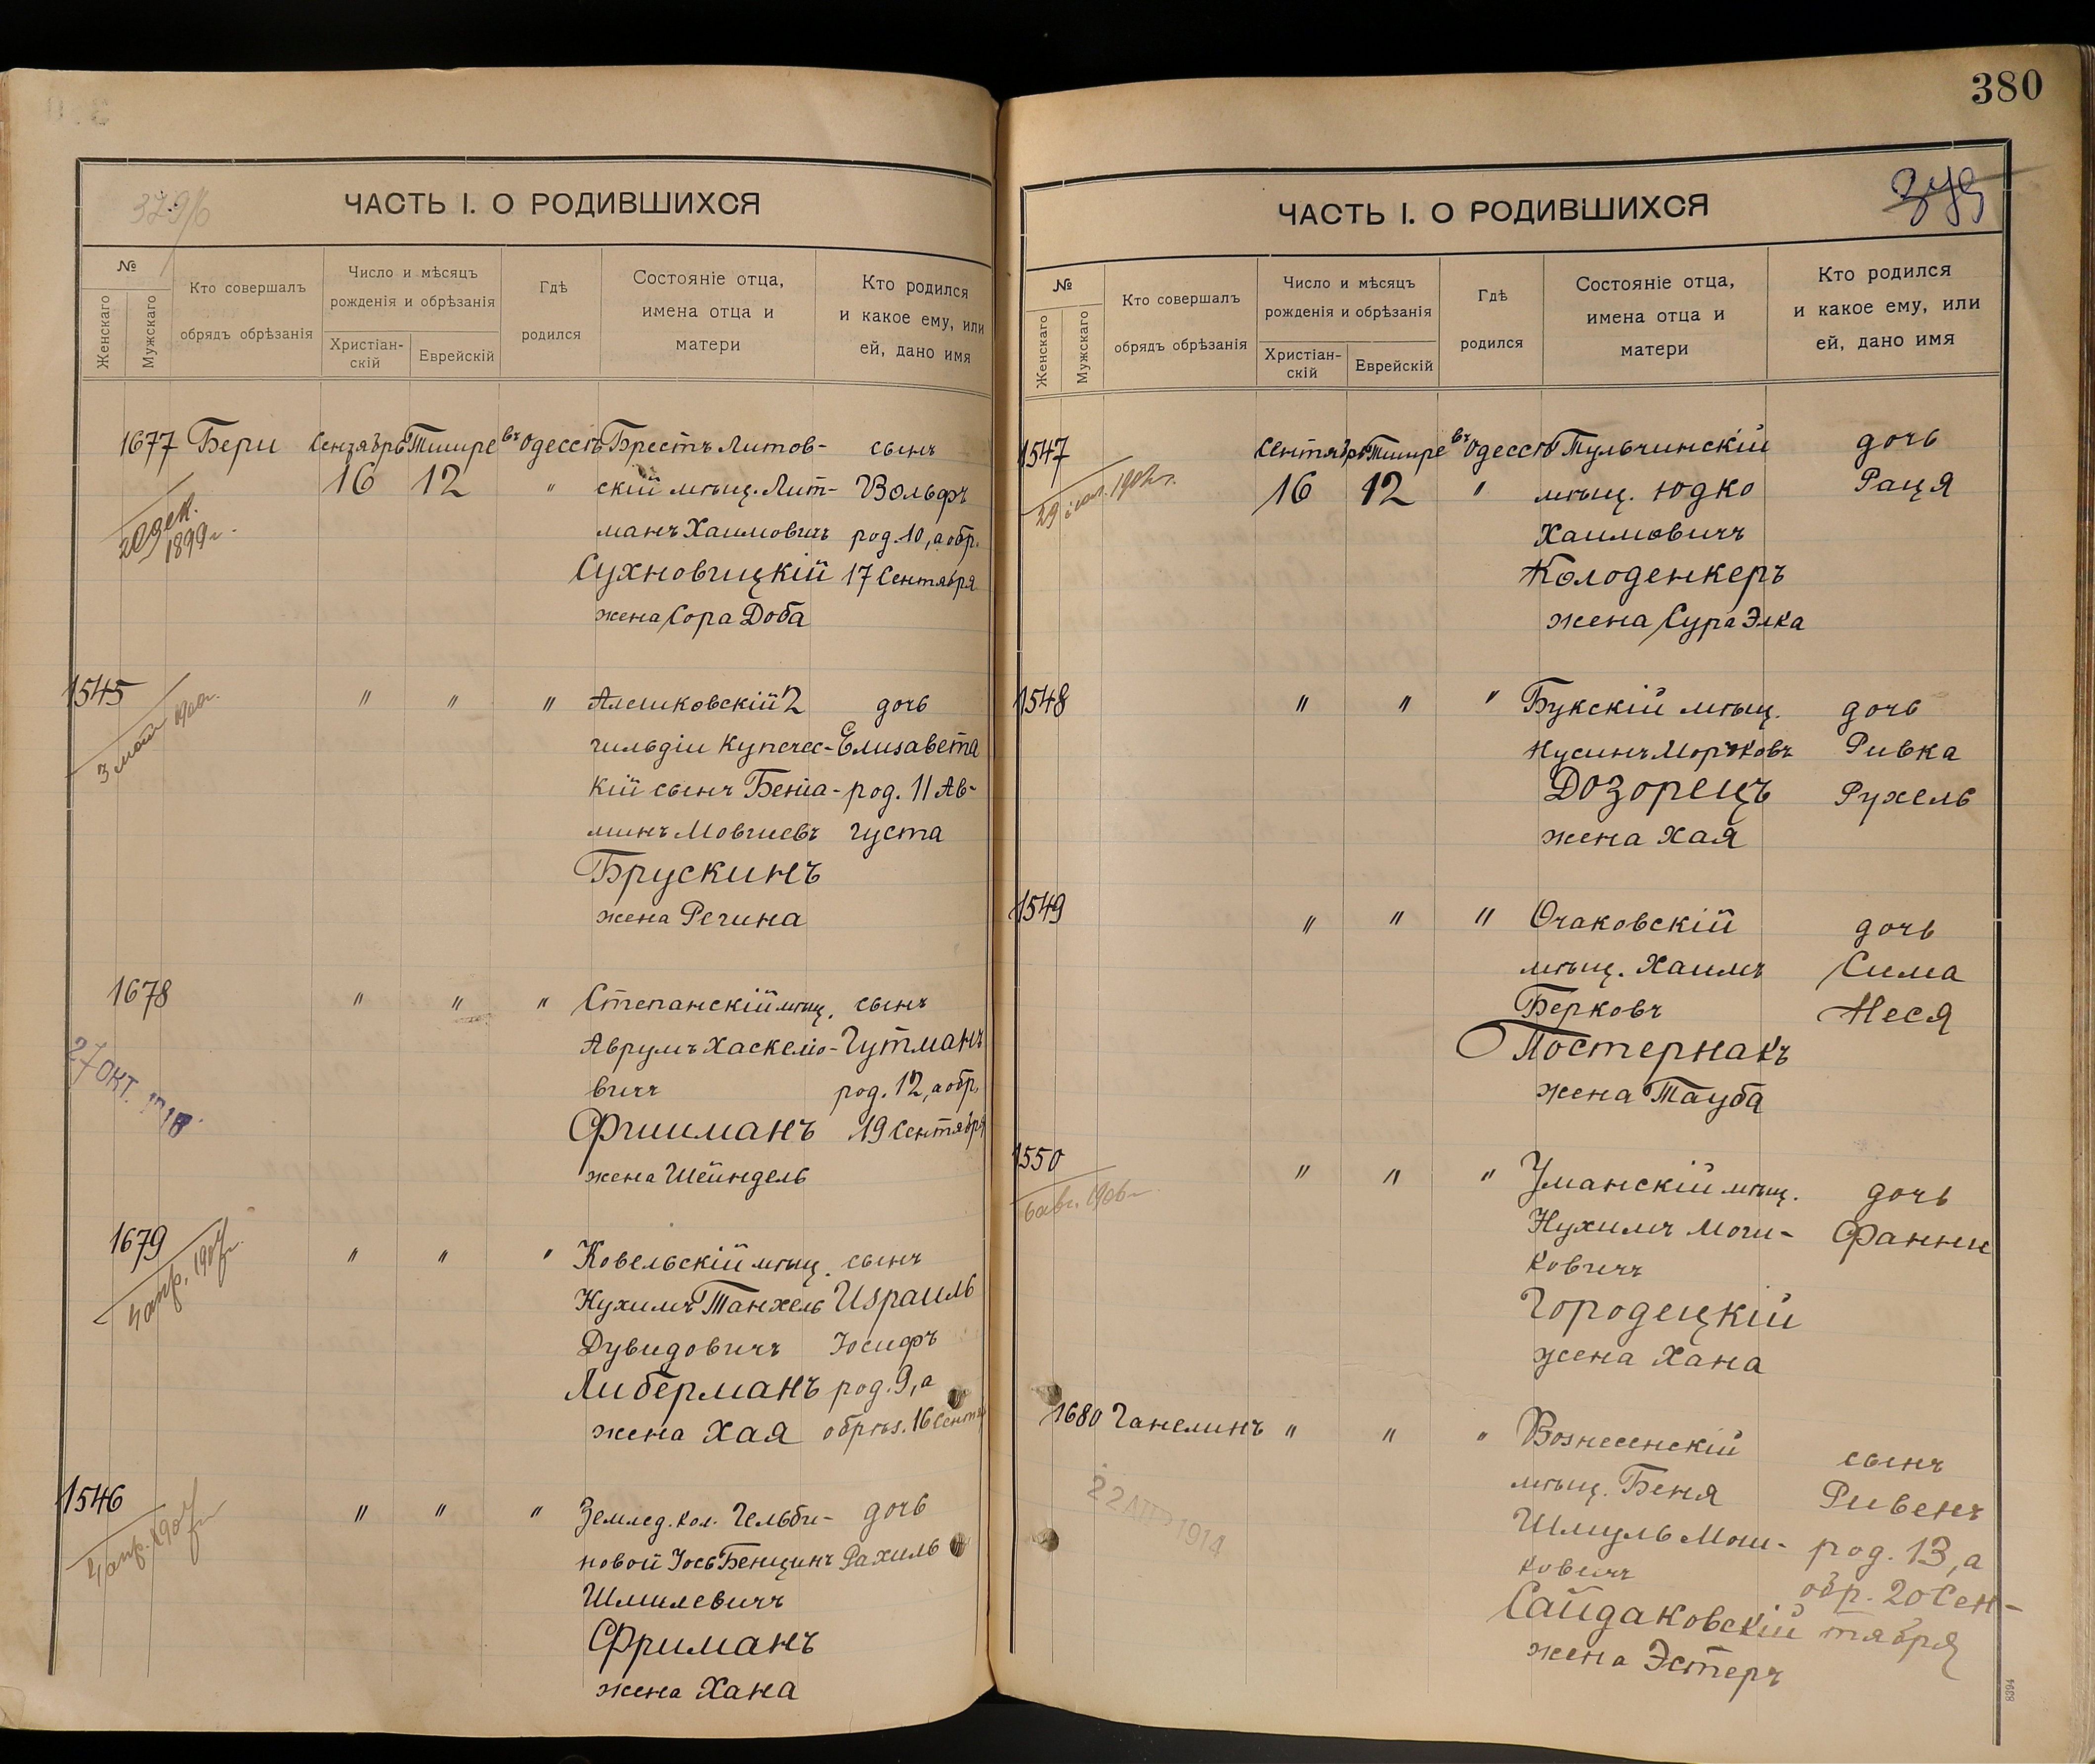 380
ЧАСТЬ I. О РОДИВШИХСЯ
№
Женскаго
Мужскаго
Кто совершалъ
обрядъ обрѣзанія
Число и мѣсяцъ
рожденія и обрѣзанія
Христіан-
скій
Еврейскій
Гдѣ
родился
Состояніе отца,
имена отца и
матери
Кто родился
и какое ему, или
ей, дано имя
1677 Бери Сентябрь Тишре въ Одессѣ Брестъ Литов- сынъ
16 12 " скій мѣщ. Лит- Вольфъ
манъ Хаимовичъ род. 10, а обр.
Сухновицкій 17 Сентября
жена Сора Доба
20 дек.
1899 г.
1545 " " " Алешковскій 2 дочь
гильдіи Купечес- Елизавета
кій сынъ Беніа- род. 11 Ав-
минъ Мовшевъ густа
Брускинъ
жена Регина
3 мая 1900 г.
1678 " " " Степанскій мѣщ. сынъ
Аврумъ Хаскеліо- Гутманъ
вичъ род. 12, а обр.
Фишманъ 19 Сентября
жена Шейндель
27 ОКТ.
1679 " " " Ковельскій мѣщ. сынъ
Нухимъ Танхель Израиль
Дувидовичъ Іосифъ
Либерманъ род. 9, а
жена Хая обрѣз. 16 Сентя
4 апр. 1907 г.
1546 " " " Землед. кол. Гельби- дочь
новой Іось Бенционъ Рахиль
Шмилевичъ
Фриманъ
жена Хана
4 апр. 1907 г.
ЧАСТЬ I. О РОДИВШИХСЯ
379
№
Женскаго
Мужскаго
Кто совершалъ
обрядъ обрѣзанія
Число и мѣсяцъ
рожденія и обрѣзанія
Христіан-
скій
Еврейскій
Гдѣ
родился
Состояніе отца,
имена отца и
матери
Кто родился
и какое ему, или
ей, дано имя
1547 Сентябрь Тишре въ Одессѣ Тульчинскій дочь
16 12 " мѣщ. Юдко Раця
Хаимовичъ
Колоденкеръ
жена Сура Элка
29 1902 г.
1548 " " " Букскій мѣщ. дочь
Нусинъ Морковъ Ривка
Дозорецъ Рухель
жена Хая
1549 " " " Очаковскій дочь
мѣщ. Хаимъ Сима
Берковъ Неся
Постернакъ
жена Тауба
1550 " " " Уманскій мѣщ. дочь
Нухимъ Мош- Фанни
ковичъ
Городецкій
жена Хана
6 авг. 1906 г.
1680 Ганелинъ " " " Вознесенскій сынъ
мѣщ. Беня Ривенъ
Шмуль Мош- род. 13, а
ковичъ обр. 20 Сен-
Сайдаковскій тября
жена Эстеръ
22 АПР 1914
8394